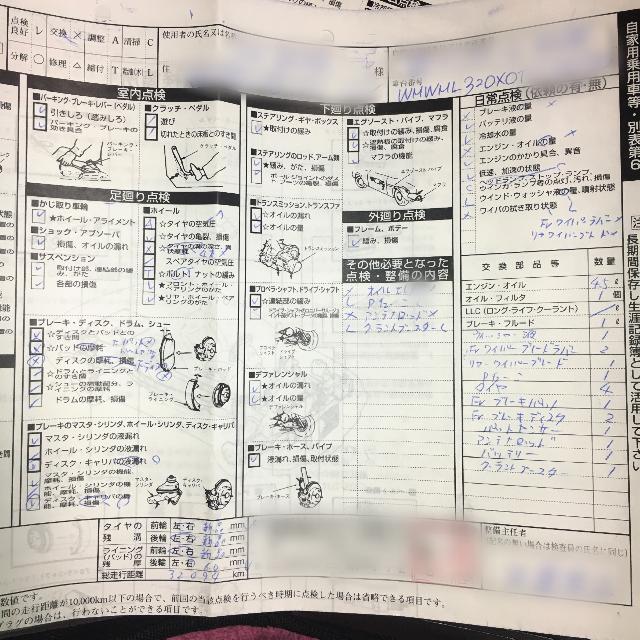 点検良好 レ 交換 × 調整 A 清掃 C
分解 ○ 修理 △ 締付 T 給油(水) L
使用者の氏名又は名称
住
車台番号
WMWML320X0T
自家用乗用車等・別表第6
長期間保存し生涯記録簿として活用して下さい
室内点検
■パーキング・ブレーキ・レバー(ペダル)
引きしろ(踏みしろ)
パーキング・ブレーキの効き具合
■クラッチ・ペダル
遊び
切れたときの床板とのすき間
クラッチ・ペダル
足廻り点検
■かじ取り車輪
★ホイール・アライメント
■ショック・アブソーバ
損傷、オイルの漏れ
■サスペンション
取付け部、連結部の緩み、がた、損傷
各部の損傷
■ホイール
☆タイヤの空気圧
☆タイヤの亀裂、損傷
スペアタイヤの空気圧
☆ボルト、ナットの緩み
★フロント・ホイール・ベアリングのがた
★リヤ・ホイール・ベアリングのがた
■ブレーキ・ディスク、ドラム、シュー
☆ディスクとパッドとのすき間
☆パッドの摩耗
ディスクの摩耗、損傷
☆ドラムとライニングとのすき間
☆シューの摺動部分、ライニングの摩耗
ドラムの摩耗、損傷
■ブレーキのマスタ・シリンダ、ホイール・シリンダ、ディスク・キャリパ
マスタ・シリンダの液漏れ
ホイール・シリンダの液漏れ
ディスク・キャリパの液漏れ
マスタ・シリンダの機能、摩耗、損傷
ホイール・シリンダの機能、摩耗、損傷
ディスク・キャリパの機能、摩耗、損傷
マスタ・シリンダ
ディスク・キャリパ
下廻り点検
■ステアリング・ギヤ・ボックス
★取付けの緩み
■ステアリングのロッド、アーム類
★緩み、がた、損傷
ボール・ジョイントのダスト・ブーツの亀裂、損傷
■トランスミッション、トランスファ
☆オイルの漏れ
☆オイルの量
トランスミッション
■プロペラ・シャフト、ドライブ・シャフト
☆連結部の緩み
ドライブ・シャフト
■デファレンシャル
★オイルの漏れ
★オイルの量
デファレンシャル
■ブレーキ・ホース、パイプ
液漏れ、損傷、取付状態
ブレーキ・ホース
■エグゾースト・パイプ、マフラ
☆取付けの緩み、損傷、腐食
☆遮熱板の取付けの緩み、損傷、腐食
マフラの機能
エグゾースト・パイプ
マフラ
外廻り点検
■フレーム、ボデー
緩み、損傷
その他必要となった点検・整備の内容
× アンテナロット ×
日常点検(依頼の有・無)
ブレーキ液の量
バッテリ液の量
冷却水の量
エンジン・オイルの量
エンジンのかかり具合、異音
低速、加速の状態
ウインド・ウォッシャ液の量、噴射状態
ワイパの拭き取り状態
交換部品等 数量
エンジン・オイル 4.5 ℓ
オイル・フィルタ 1 個
LLC(ロング・ライフ・クーラント) ℓ
ブレーキ・フルード 1 ℓ
Fr ワイパーブレードラバー 2
リヤワイパーブレード 1
タイヤ 4
Fr ブレーキパット 1
Fr ブレーキディスク 2
パットセンサー 1
アンテナロッド 1
バッテリー 1
クーラントブースター 1
タイヤの残溝 前輪 左・右 新品 mm
後輪 左・右 新品 mm
ライニング(パッド)の残厚 前輪 左・右 新品 mm
後輪 左・右 mm
総走行距離 32,094 km
整備主任者
(記名の無い場合は検査員の氏名に同じ)
数値です。
間の走行距離が10,000km以下の場合で、前回の当該点検を行うべき時期に点検した場合は省略できる項目です。
プラグの場合は、行わないことができる項目です。